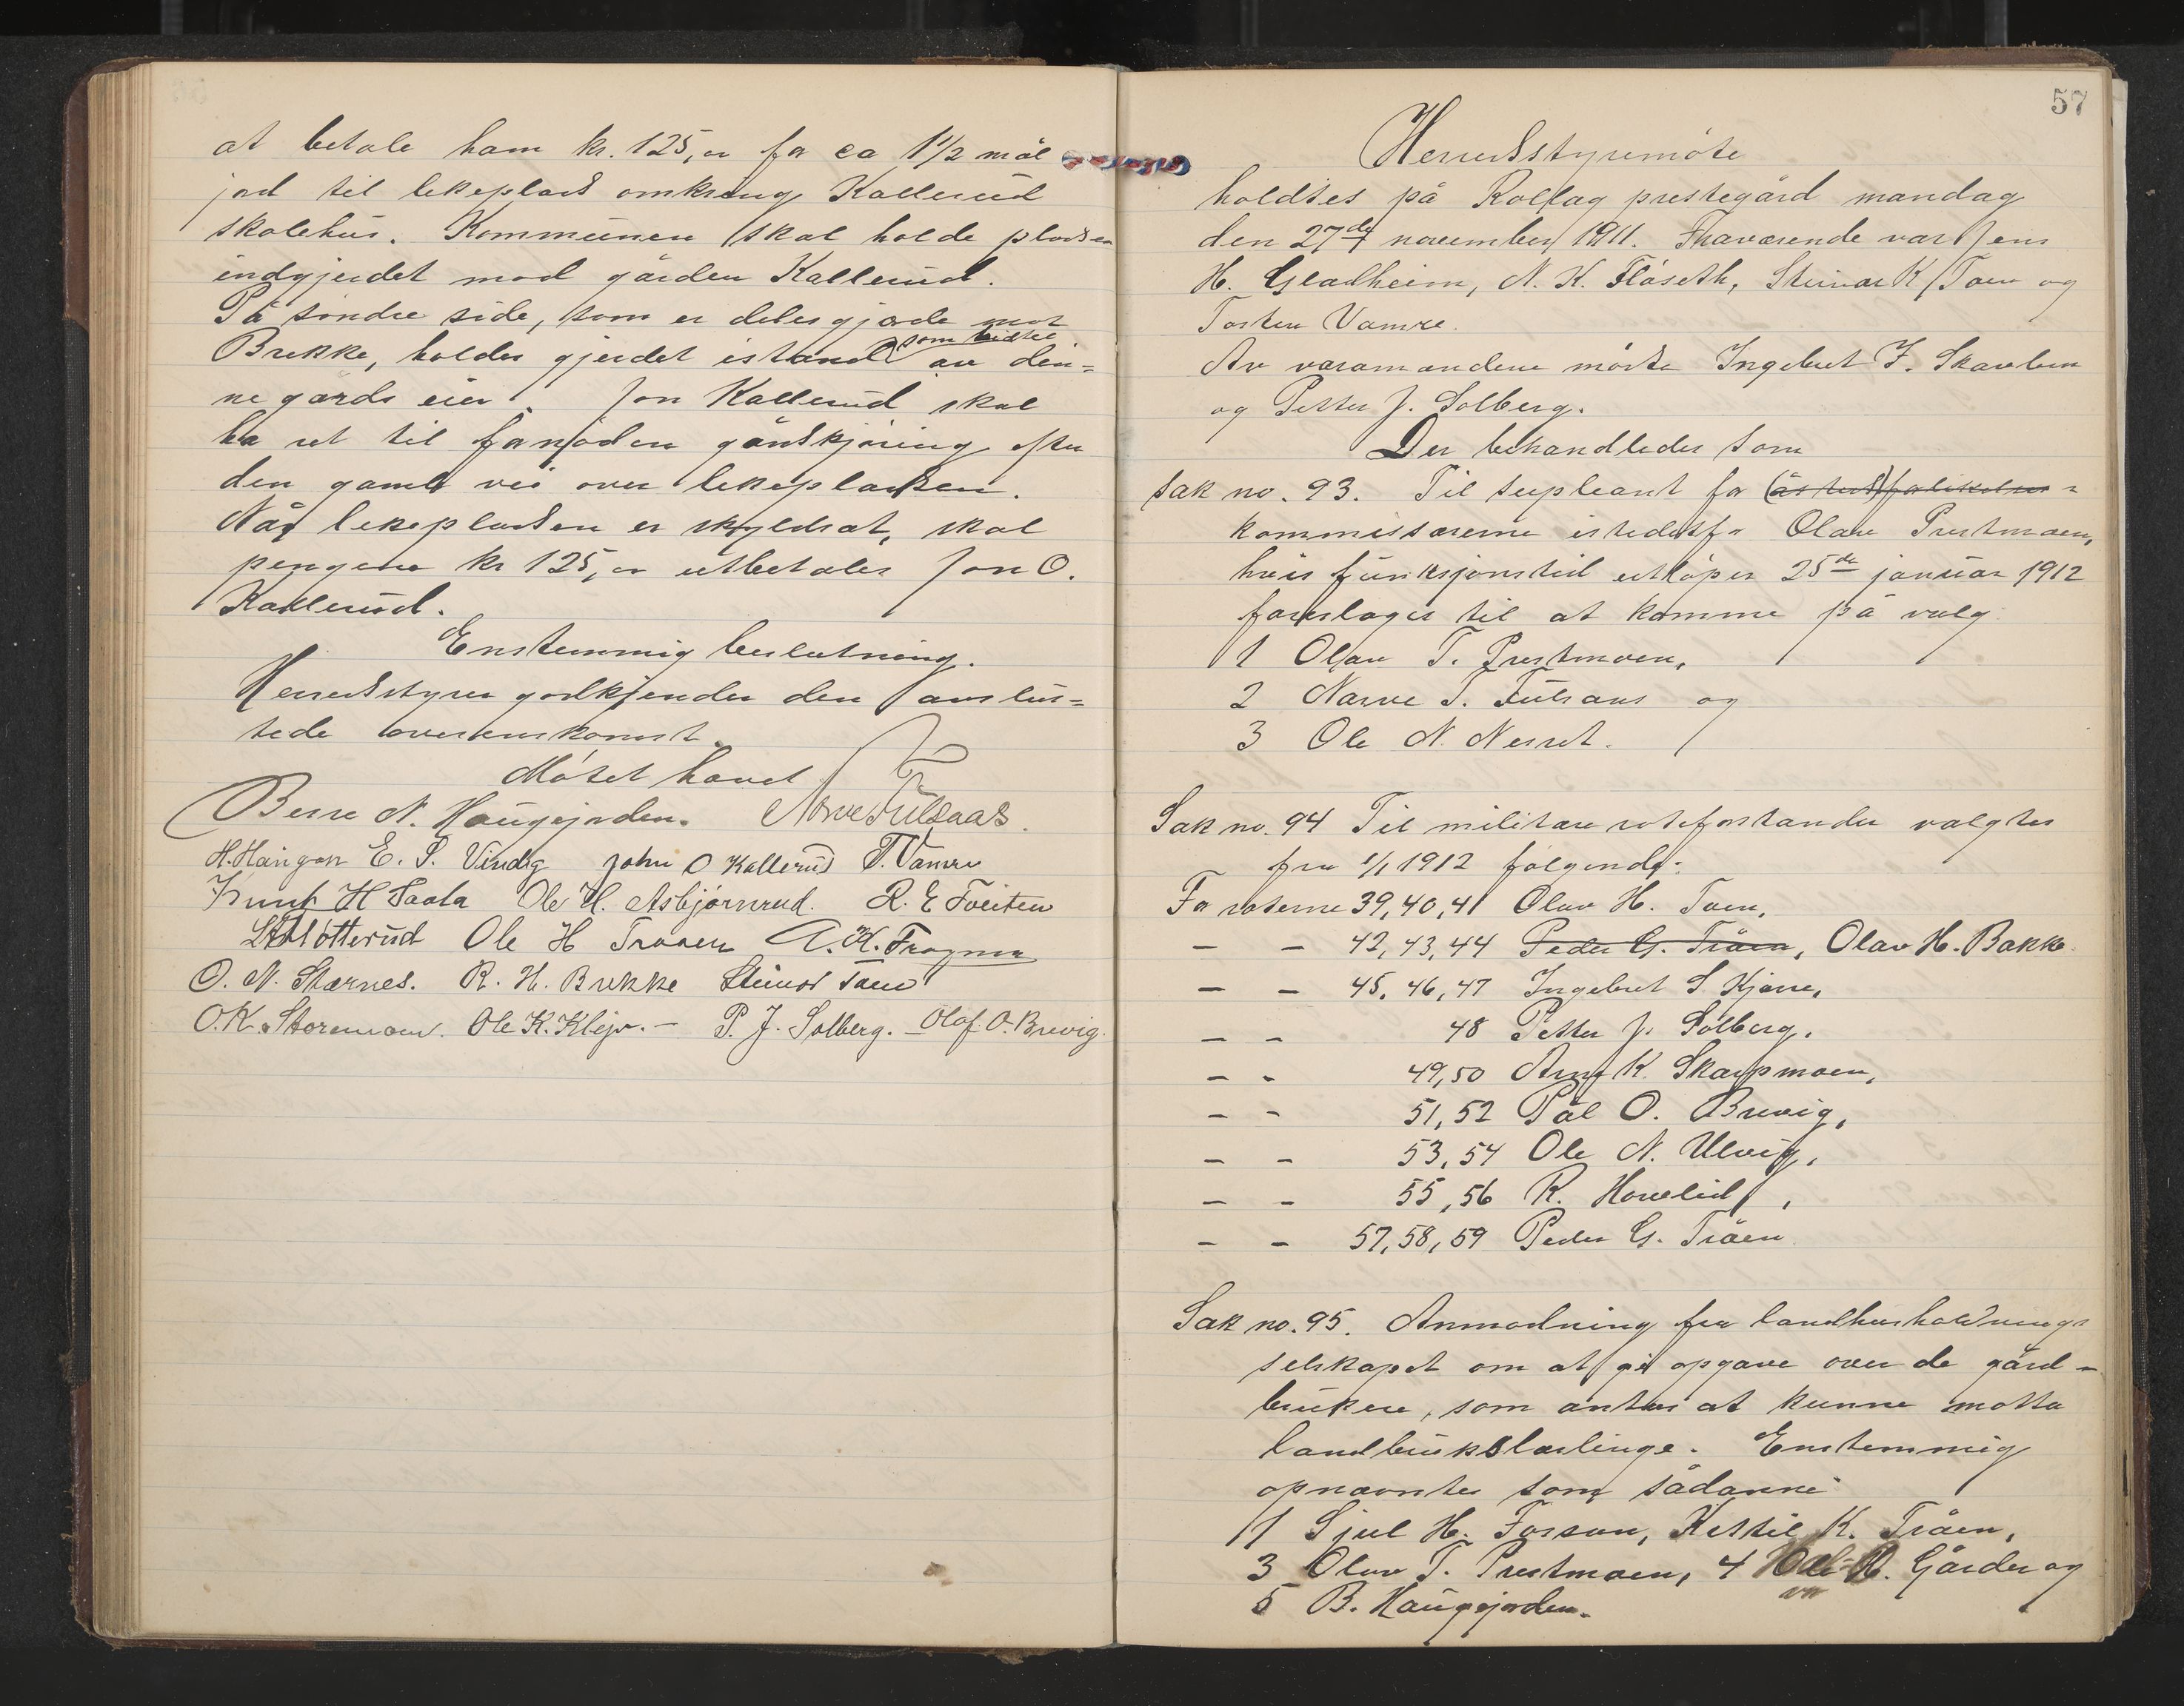 at betale ham kr. 125,00 for ca 1 1/2 mål
jord til lekeplads omkring Kallerud
skolehus. Kommunen skal holde pladsen
indgjerdet mod gården Kallerud.
På söndre side, som er delesgjærde mot
Brekke, holdes gjerdet istand som hidtil av den-
ne gårds eier. Jon Kallerud skal
ha ret til fornöden gårdskjöring efter
den gamle vei over lekepladsen.
Når lekepladsen er skyldsat, skal
pengene kr 125,00 utbetales Jon O.
Kallerud.
Enstemmig beslutning.
Herredsstyret godkjender den avslut-
tede overenskomst.
Mötet hævet
Berre N. Haugejorden. Narve Fulsaas.
H. Haugan E. S. Vindeg John O Kallerud T. Vamre
Knut H Saata Ole H. Asbjörnrud. R. E Tveiten
Slotterud Ole H Traaen A. K. Frogner
O. N. Stærnes. R. H. Brekke Steinar Toen
O. K. Storemoen. Ole K. Kleja. - P. J. Solberg. - Olaf O. Brevig.
57
Herredsstyremöte
holdtes på Rollag prestegård mandag
den 27de november 1911. Fraværende var Jens
H. Gladheim, N. K. Flåseth, Steinar K Toen og
Tosten Vamre.
Av varamændene mötte Ingebret F. Skarebrn
og Petter J. Solberg.
Der behandledes som
Sak no. 93. Til supleant for (åsteds) forlikelses-
kommissærerne istedetfor Olav Prestmoen,
hvis funksjonstid utlöper 25de januar 1912
foreslåes til at komme på valg
1 Olav T. Prestmoen,
2 Narve T. Fulsaas og
3 Ole N. Nesset.
Sak no. 94 Til militære roteforstander valgtes
fra 1/1 1912 fölgende:
For roterne 39, 40, 41 Olav H. Toen,
- - 42, 43, 44 Peder G. Tråen, Olav H. Bakke
- - 45, 46, 47 Ingebret S. Kjerre,
- - 48 Petter J. Solberg.
- - 49, 50 Arne K. Skarpmoen,
- - 51, 52 Pål O. Brevig,
- - 53, 54 Ole N. Ulvig,
- - 55, 56 R. Hovelid,
- - 57, 58, 59 Peder G. Tråen
Sak no. 95. Anmodning fra landhusholdnings
selskapet om at gi opgave over de gård-
brukere, som antas at kunne motta
landbrukslærlinge. Enstemmig
opnævntes som sådanne:
1 Sjul H. Fossan, Kettil K. Tråen,
3 Olav T. Prestmoen, 4 H. Gårder og
5 B. Haugejorden.